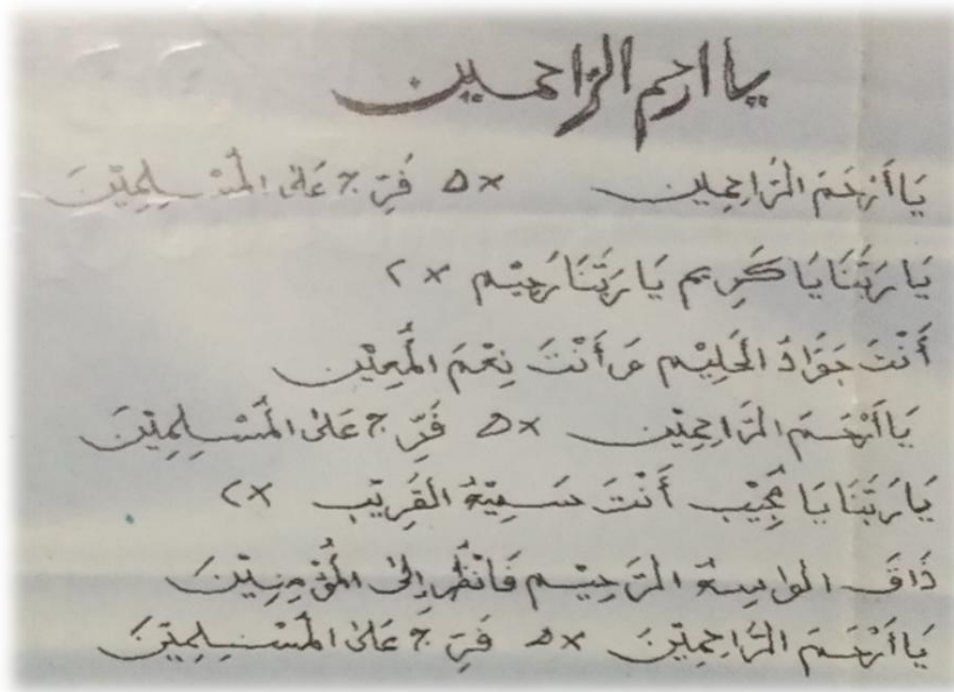 يا ارحم الراحمين
يَا أَرْحَمَ الرَّاحِمِين ×٥ فَرِّجْ عَلَى الْمُسْلِمِيْنَ
يَا رَبَّنَا يَا كَرِيم يَا رَبَّنَا رَحِيْم ×٢
أَنْتَ جَوَّادُ الْحَلِيْم وَأَنْتَ نِعْمَ الْمُعِيْن
يَا أَرْحَمَ الرَّاحِمِيْن ×٥ فَرِّجْ عَلَى الْمُسْلِمِيْنَ
يَا رَبَّنَا يَا مُجِيْب أَنْتَ سَمِيْعُ الْقَرِيْب ×٢
ذَاقَ الْوَاسِعُ الرَّحِيْم فَانْظُر إِلَى الْمُؤْمِنِيْنَ
يَا أَرْحَمَ الرَّاحِمِيْنَ ×٥ فَرِّجْ عَلَى الْمُسْلِمِيْنَ